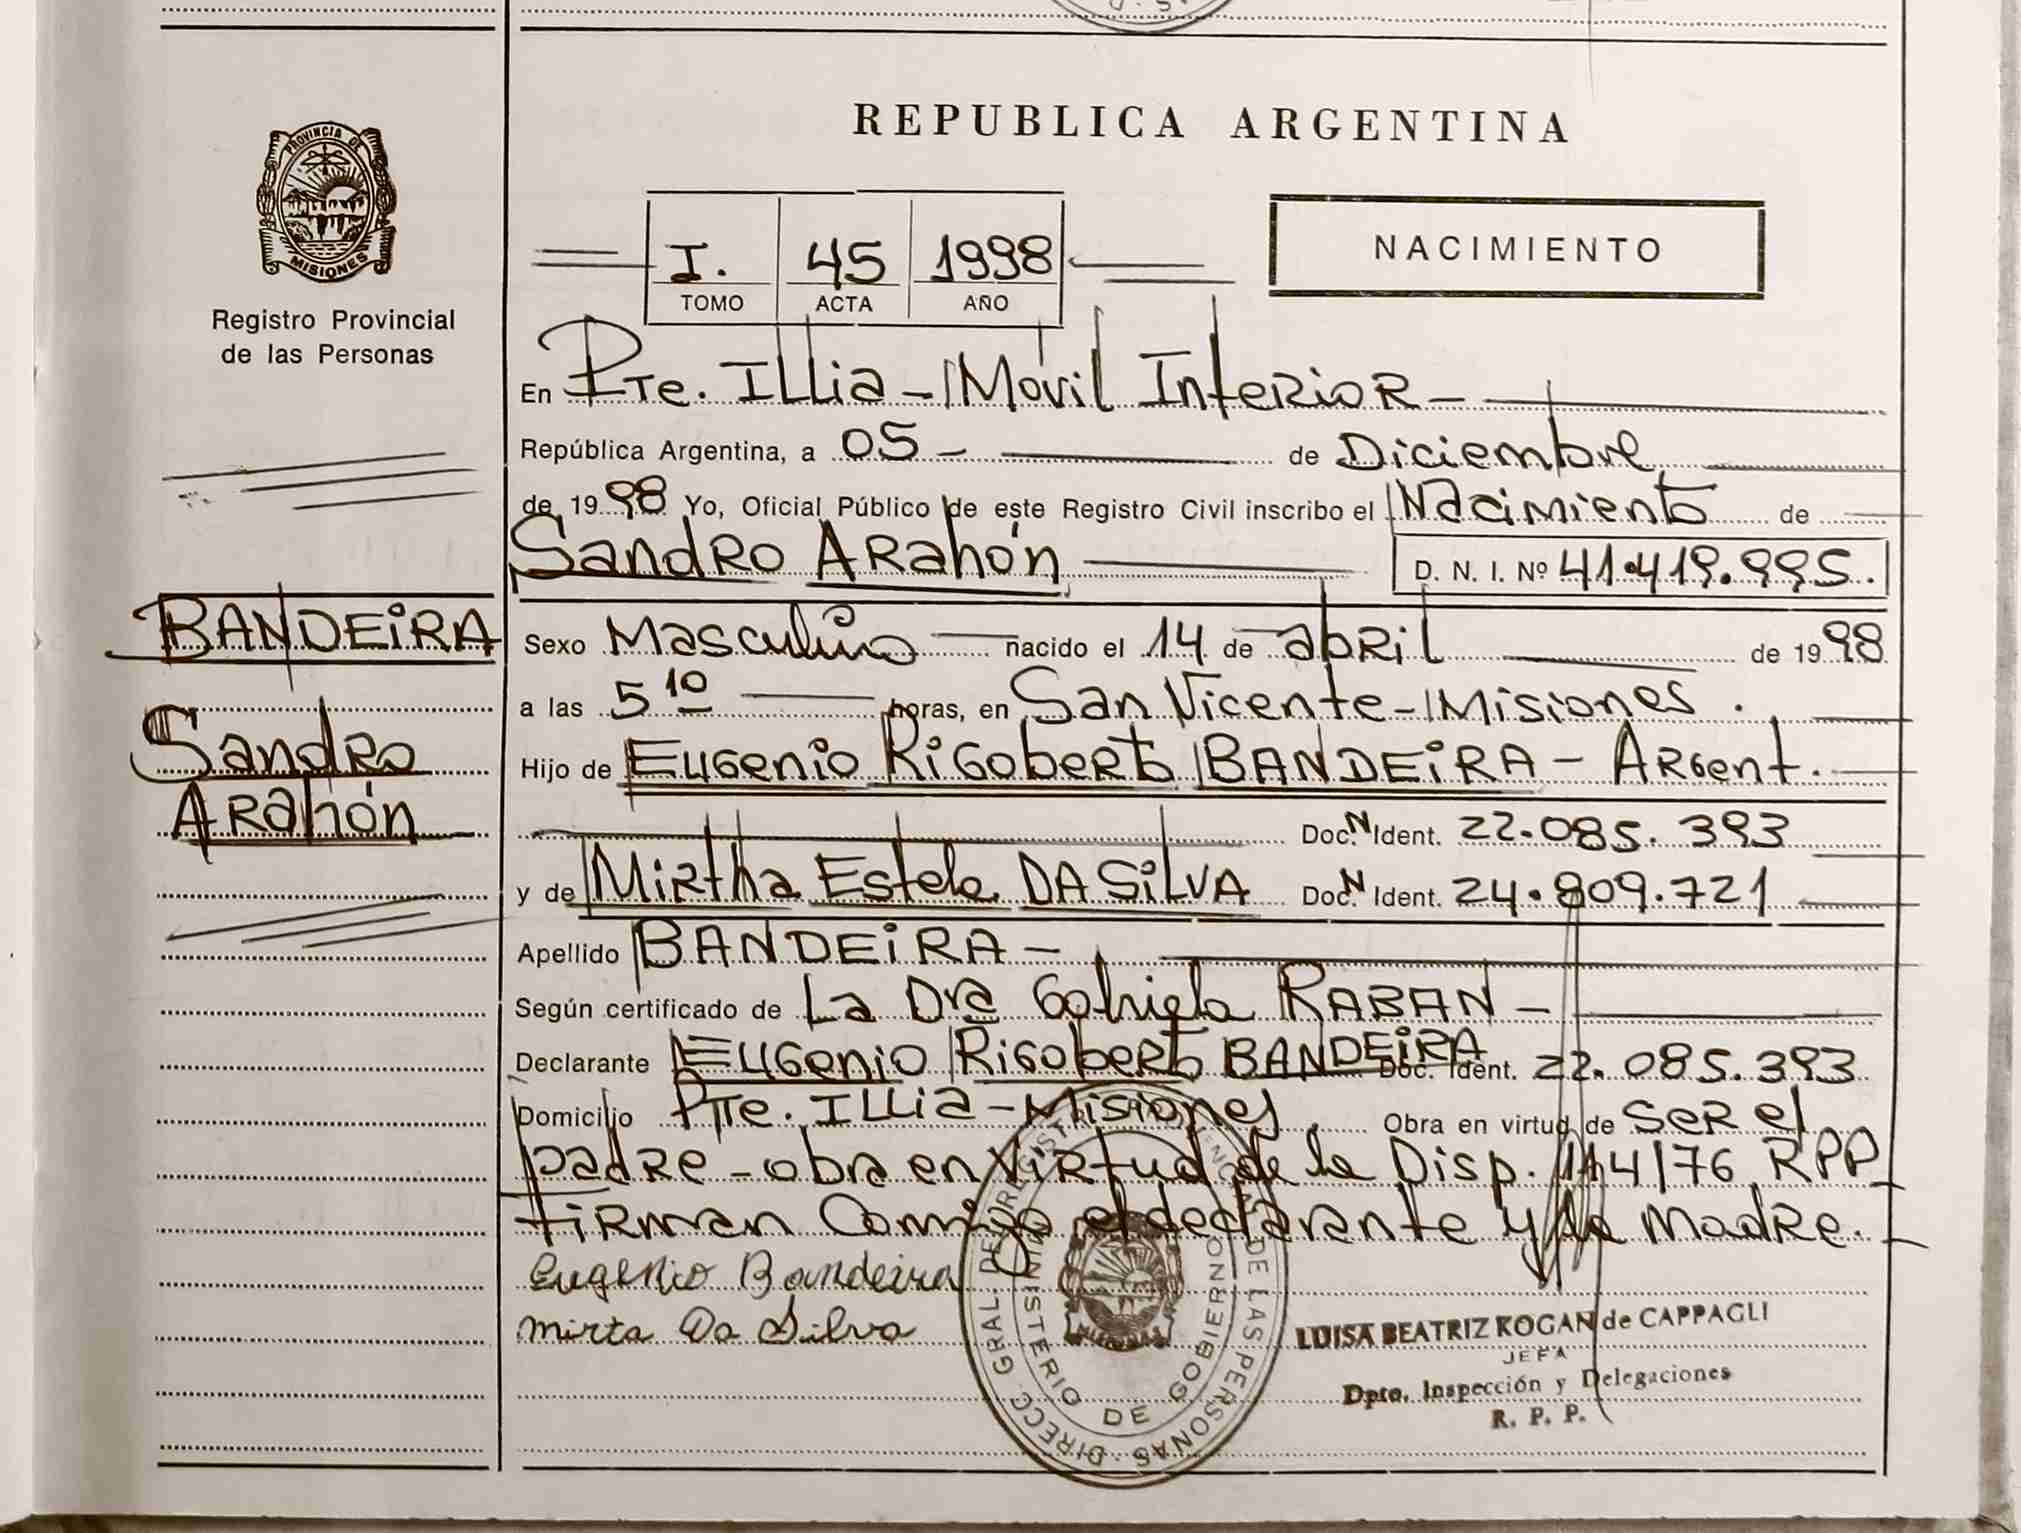 REPUBLICA ARGENTINA
PROVINCIA DE
MISIONES
Registro Provincial
de las Personas
I. 45 1998
TOMO ACTA AÑO
NACIMIENTO
En Pte. Illia - Móvil Interior -
República Argentina, a 05 - de Diciembre
de 1998 Yo, Oficial Público de este Registro Civil inscribo el Nacimiento de
Sandro Arahón D. N. I. Nº 41.419.995.
BANDEIRA
Sandro
Arahón
Sexo Masculino nacido el 14 de abril de 1998
a las 5 10 horas, en San Vicente - Misiones.
Hijo de Eugenio Rigoberto BANDEIRA - Argent.
Doc. N Ident. 22.085.393
y de Mirtha Estela DA SILVA Doc. N Ident. 24.809.721
Apellido BANDEIRA -
Según certificado de La Dra Gabriela RABAN -
Declarante Eugenio Rigoberto BANDEIRA Doc. Ident. 22.085.393
Domicilio Pte. Illia - Misiones Obra en virtud de ser el
padre - obra en virtud de la Disp. 114/76 RPP
firman conmigo el declarante y la madre.
Eugenio Bandeira
Mirta Da Silva
DIRECC GRAL DE REGISTRO PROVINCIAL DE LAS PERSONAS
MINISTERIO DE GOBIERNO
MISIONES
LUISA BEATRIZ KOGAN de CAPPAGLI
JEFA
Dpto. Inspección y Delegaciones
R. P. P.